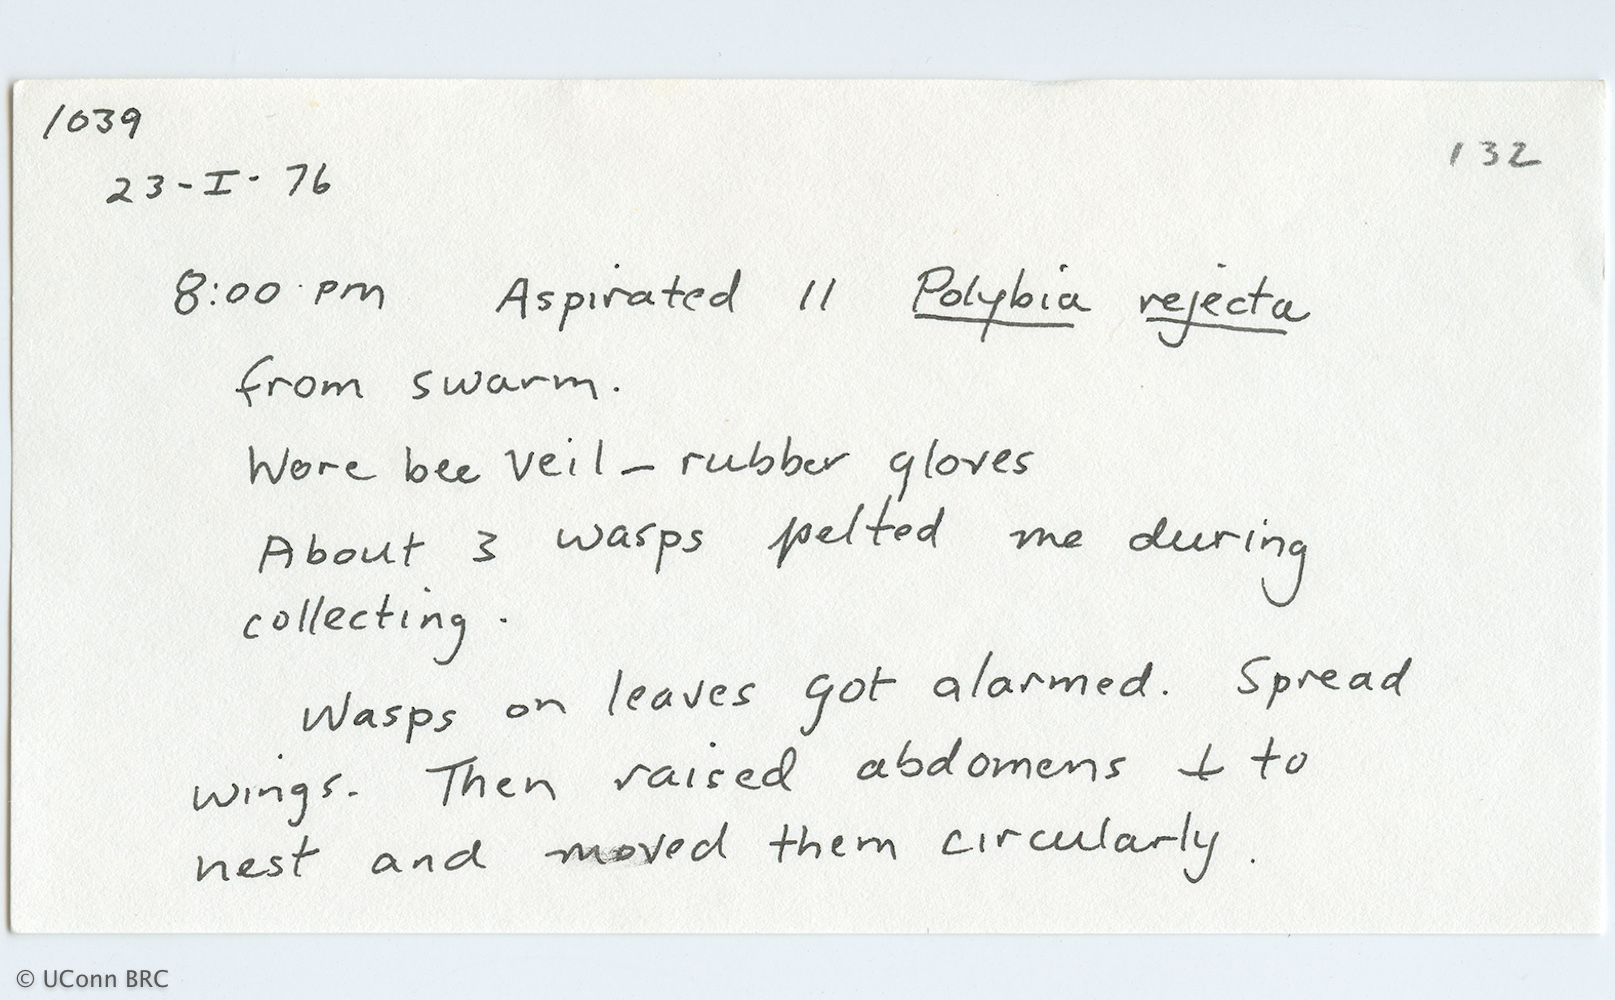 1039
132
23-I-76
8:00 pm Aspirated 11 Polybia rejecta
from swarm.
Wore bee veil – rubber gloves
About 3 wasps pelted me during
collecting.
Wasps on leaves got alarmed. Spread
wings. Then raised abdomens ⊥ to
nest and moved them circularly.
© UConn BRC